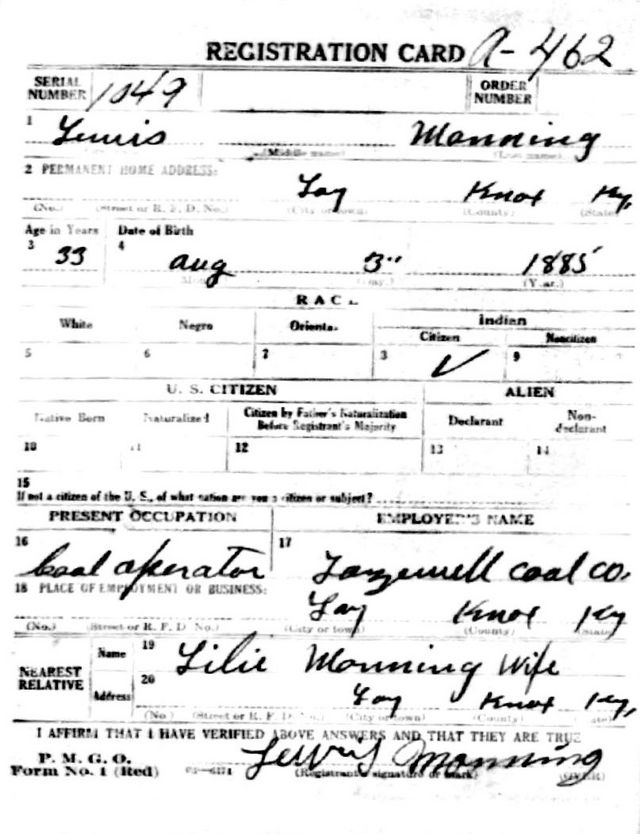 REGISTRATION CARD A-462
SERIAL NUMBER 1049 ORDER NUMBER
1 Lewis Manning
(Middle name) (Last name)
2 PERMANENT HOME ADDRESS:
Lay Knox Ky,
(No.) (Street or R. F. D. No.) (City or town) (County) (State)
Age in Years Date of Birth
3 33 4 Aug 3" 1885
(Year.)
RACE
White Negro Oriental Indian
Citizen Noncitizen
5 6 7 8 ✓ 9
U. S. CITIZEN ALIEN
Native Born Naturalized Citizen by Father's Naturalization Before Registrant's Majority Declarant Non-declarant
10 11 12 13 14
15
If not a citizen of the U. S., of what nation are you a citizen or subject?
PRESENT OCCUPATION EMPLOYER'S NAME
16 Coal operator 17 Tazewell Coal Co.
18 PLACE OF EMPLOYMENT OR BUSINESS:
Lay Knox Ky
(No.) (Street or R. F. D. No.) (City or town) (County) (State)
NEAREST RELATIVE
Name 19 Lilie Manning Wife
Address 20 Lay Knox Ky,
(No.) (Street or R. F. D. No.) (City or town) (County) (State)
I AFFIRM THAT I HAVE VERIFIED ABOVE ANSWERS AND THAT THEY ARE TRUE
P. M. G. O.
Form No. 1 (Red) 03—6171 Lewis Manning
(Registrant's signature or mark) (OVER)